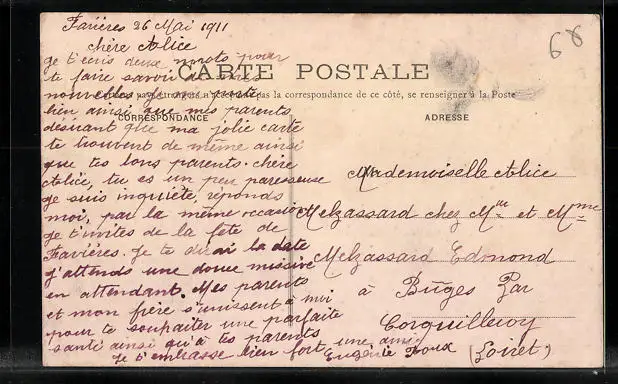 Favières 26 Mai 1911
chère Alice
je t'écris deux mots pour
te faire savoir de mes
nouvelles je me porte
bien ainsi que mes parents
désirant que ma jolie carte
te trouvent de même ainsi
que tes bons parents. chère
Alice, tu es un peu paresseuse
je suis inquiète, réponds
moi, par la même occasion
je t'invites de la fête de
Favières. Je te dirai la date
j'attends une douce missive
en attendant. Mes parents
et mon frère s'unissent à moi
pour te souhaiter une parfaite
santé ainsi qu'à tes parents
Je t'embrasse bien fort une amie
Eugénie Roux
CARTE POSTALE
pas la correspondance de ce côté, se renseigner à la Poste
CORRESPONDANCE
ADRESSE
68
Mademoiselle Alice
Melzassard chez Mr et Mme
Melzassard Edmond
à Buges Par
Corquilleroy
(Loiret)